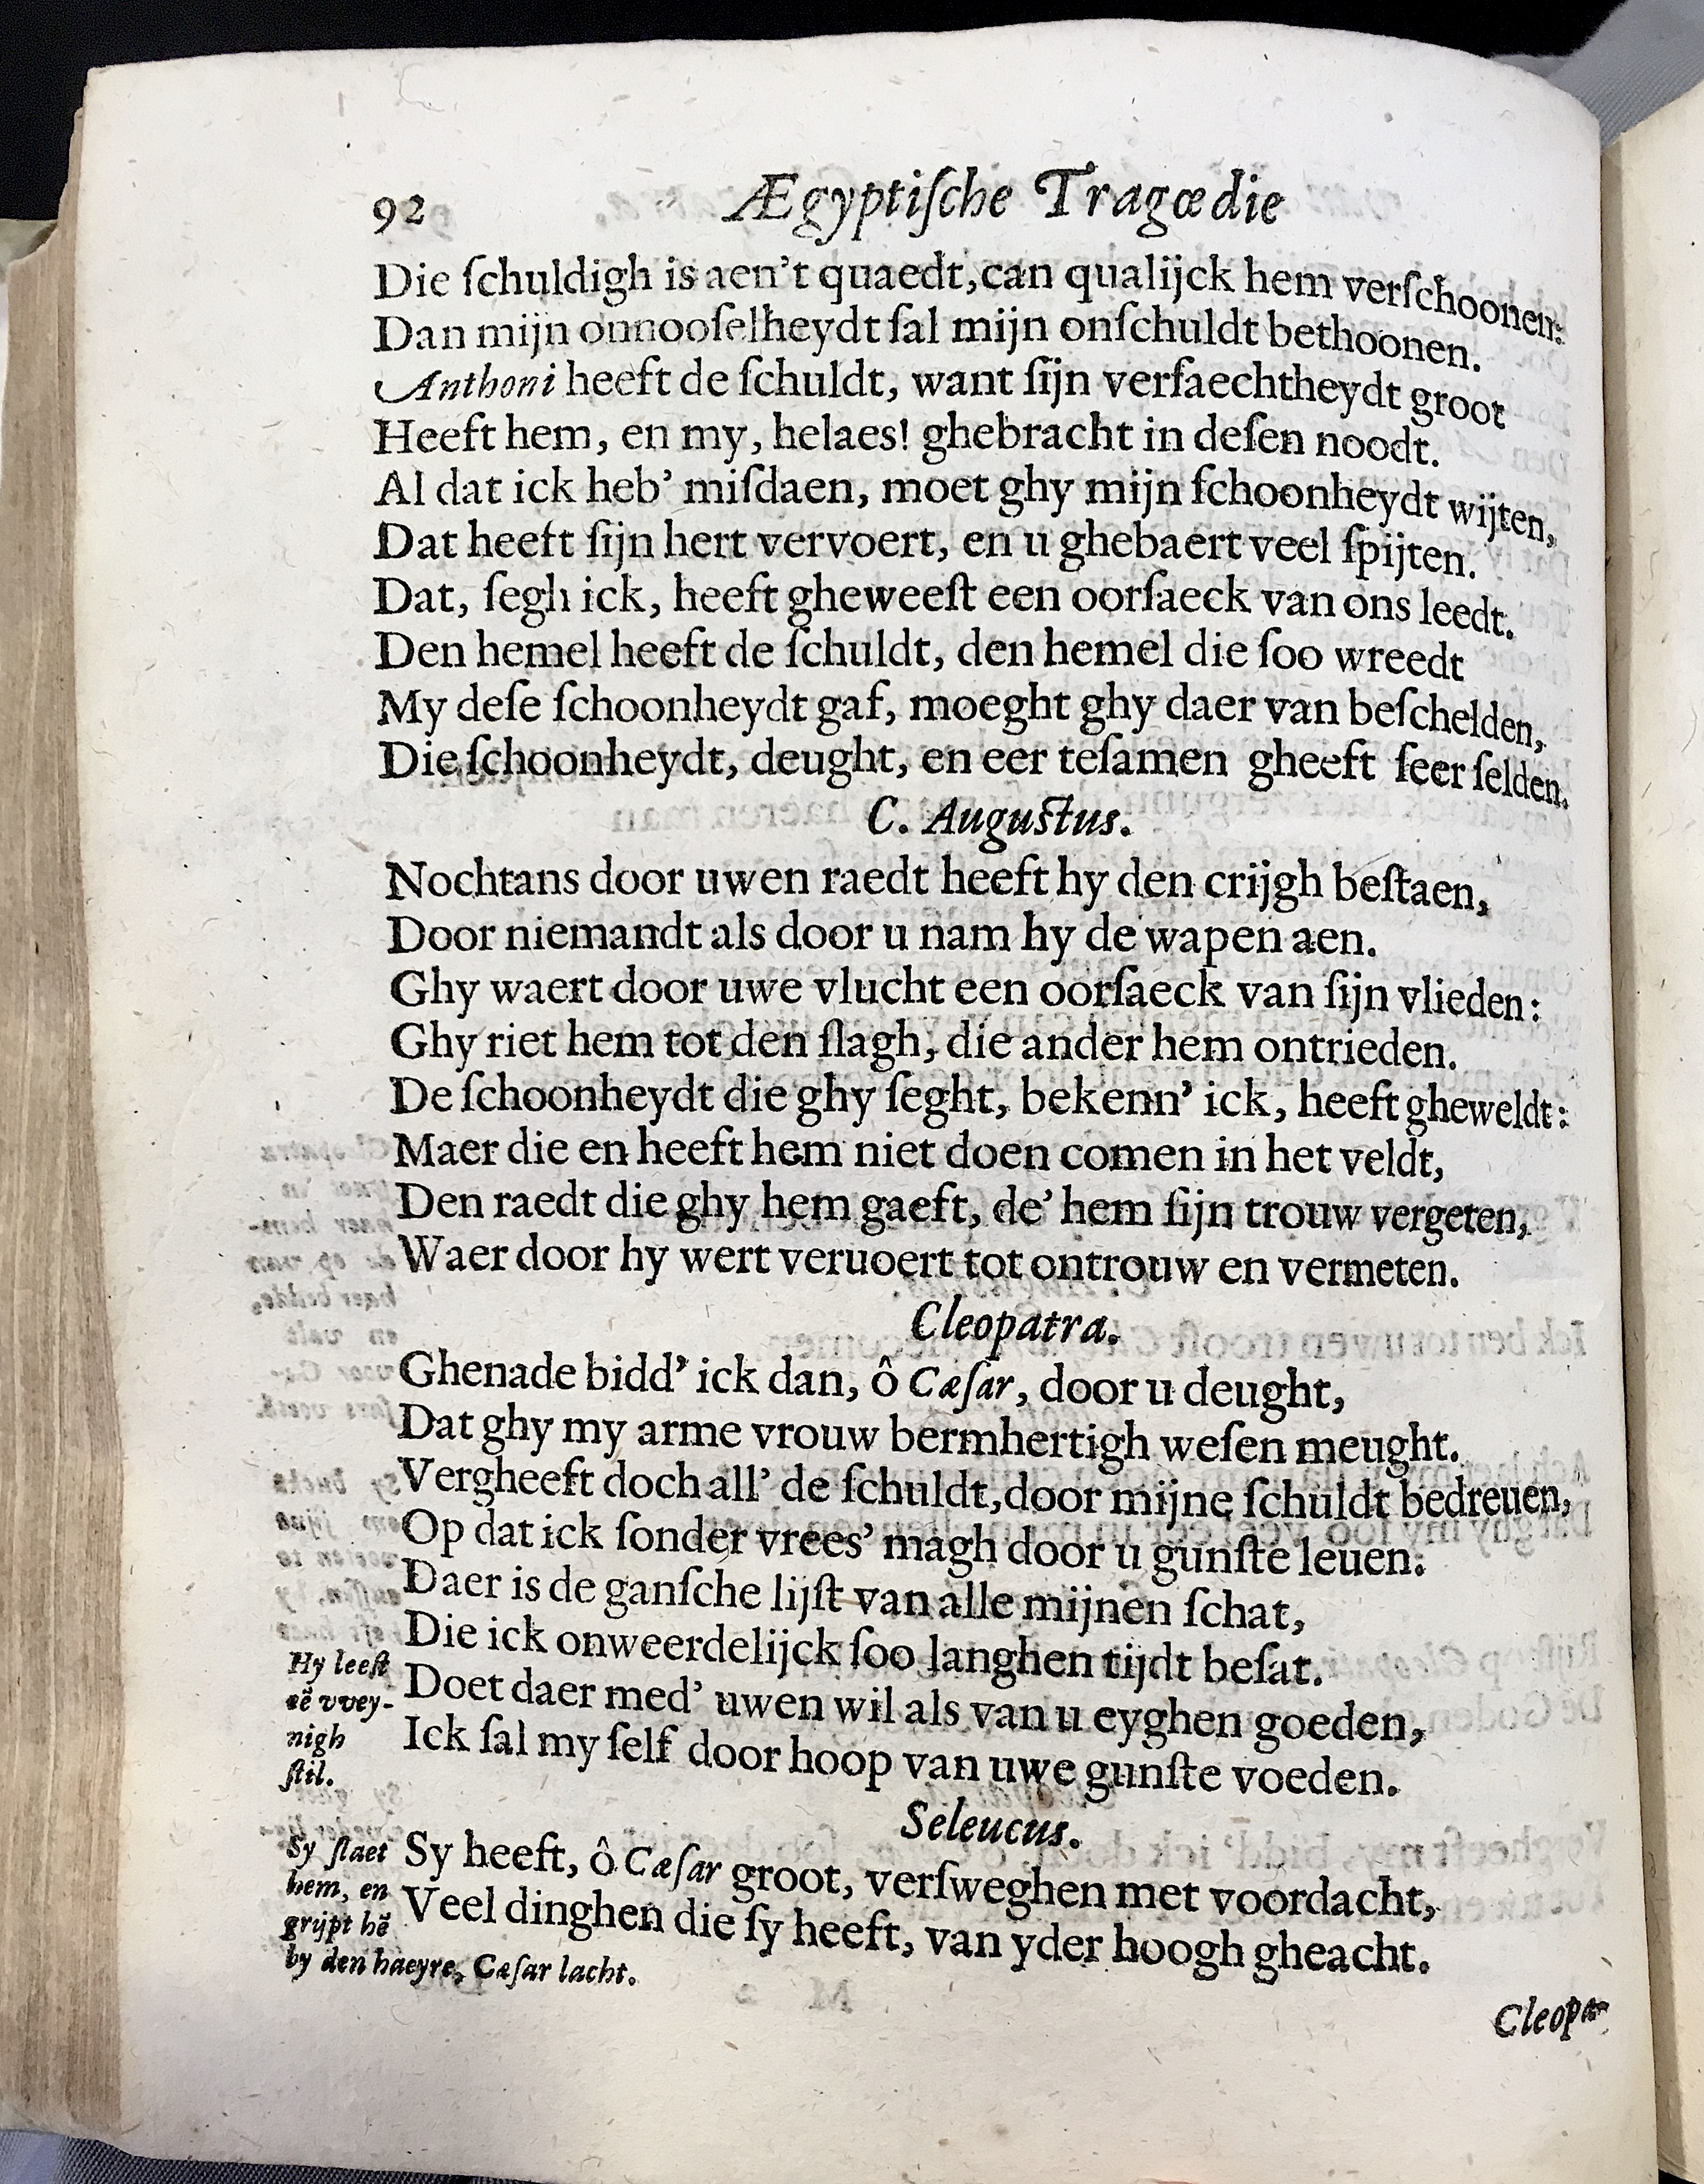 92 Ægyptiſche Tragœdie
Die ſchuldigh is aen't quaedt, can qualijck hem verſchoonen:
Dan mijn onnooſelheydt ſal mijn onſchuldt bethoonen.
Anthoni heeft de ſchuldt, want ſijn verſaechtheydt groot
Heeft hem, en my, helaes! ghebracht in deſen noodt.
Al dat ick heb' miſdaen, moet ghy mijn ſchoonheydt wijten,
Dat heeft ſijn hert vervoert, en u ghebaert veel ſpijten.
Dat, ſegh ick, heeft gheweeſt een oorſaeck van ons leedt.
Den hemel heeft de ſchuldt, den hemel die ſoo wreedt
My deſe ſchoonheydt gaf, moeght ghy daer van beſchelden,
Die ſchoonheydt, deught, en eer teſamen gheeft ſeer ſelden.
C. Auguſtus.
Nochtans door uwen raedt heeft hy den crijgh beſtaen,
Door niemandt als door u nam hy de wapen aen.
Ghy waert door uwe vlucht een oorſaeck van ſijn vlieden:
Ghy riet hem tot den ſlagh, die ander hem ontrieden.
De ſchoonheydt die ghy ſeght, bekenn' ick, heeft gheweldt:
Maer die en heeft hem niet doen comen in het veldt,
Den raedt die ghy hem gaeft, de' hem ſijn trouw vergeten,
Waer door hy wert veruoert tot ontrouw en vermeten.
Cleopatra.
Ghenade bidd' ick dan, ô Cæſar, door u deught,
Dat ghy my arme vrouw bermhertigh weſen meught.
Vergheeft doch all' de ſchuldt, door mijne ſchuldt bedreuen,
Op dat ick ſonder vrees' magh door u gunſte leuen.
Daer is de ganſche lijſt van alle mijnen ſchat,
Die ick onweerdelijck ſoo langhen tijdt beſat.
Doet daer med' uwen wil als van u eyghen goeden,
Ick ſal my ſelf door hoop van uwe gunſte voeden.
Hy leeſt
eē vvey-
nigh
ſtil.
Seleucus.
Sy heeft, ô Cæſar groot, verſweghen met voordacht,
Veel dinghen die ſy heeft, van yder hoogh gheacht.
Sy ſlaet
hem, en
grijpt hē
by den haeyre, Cæſar lacht.
Cleopa-